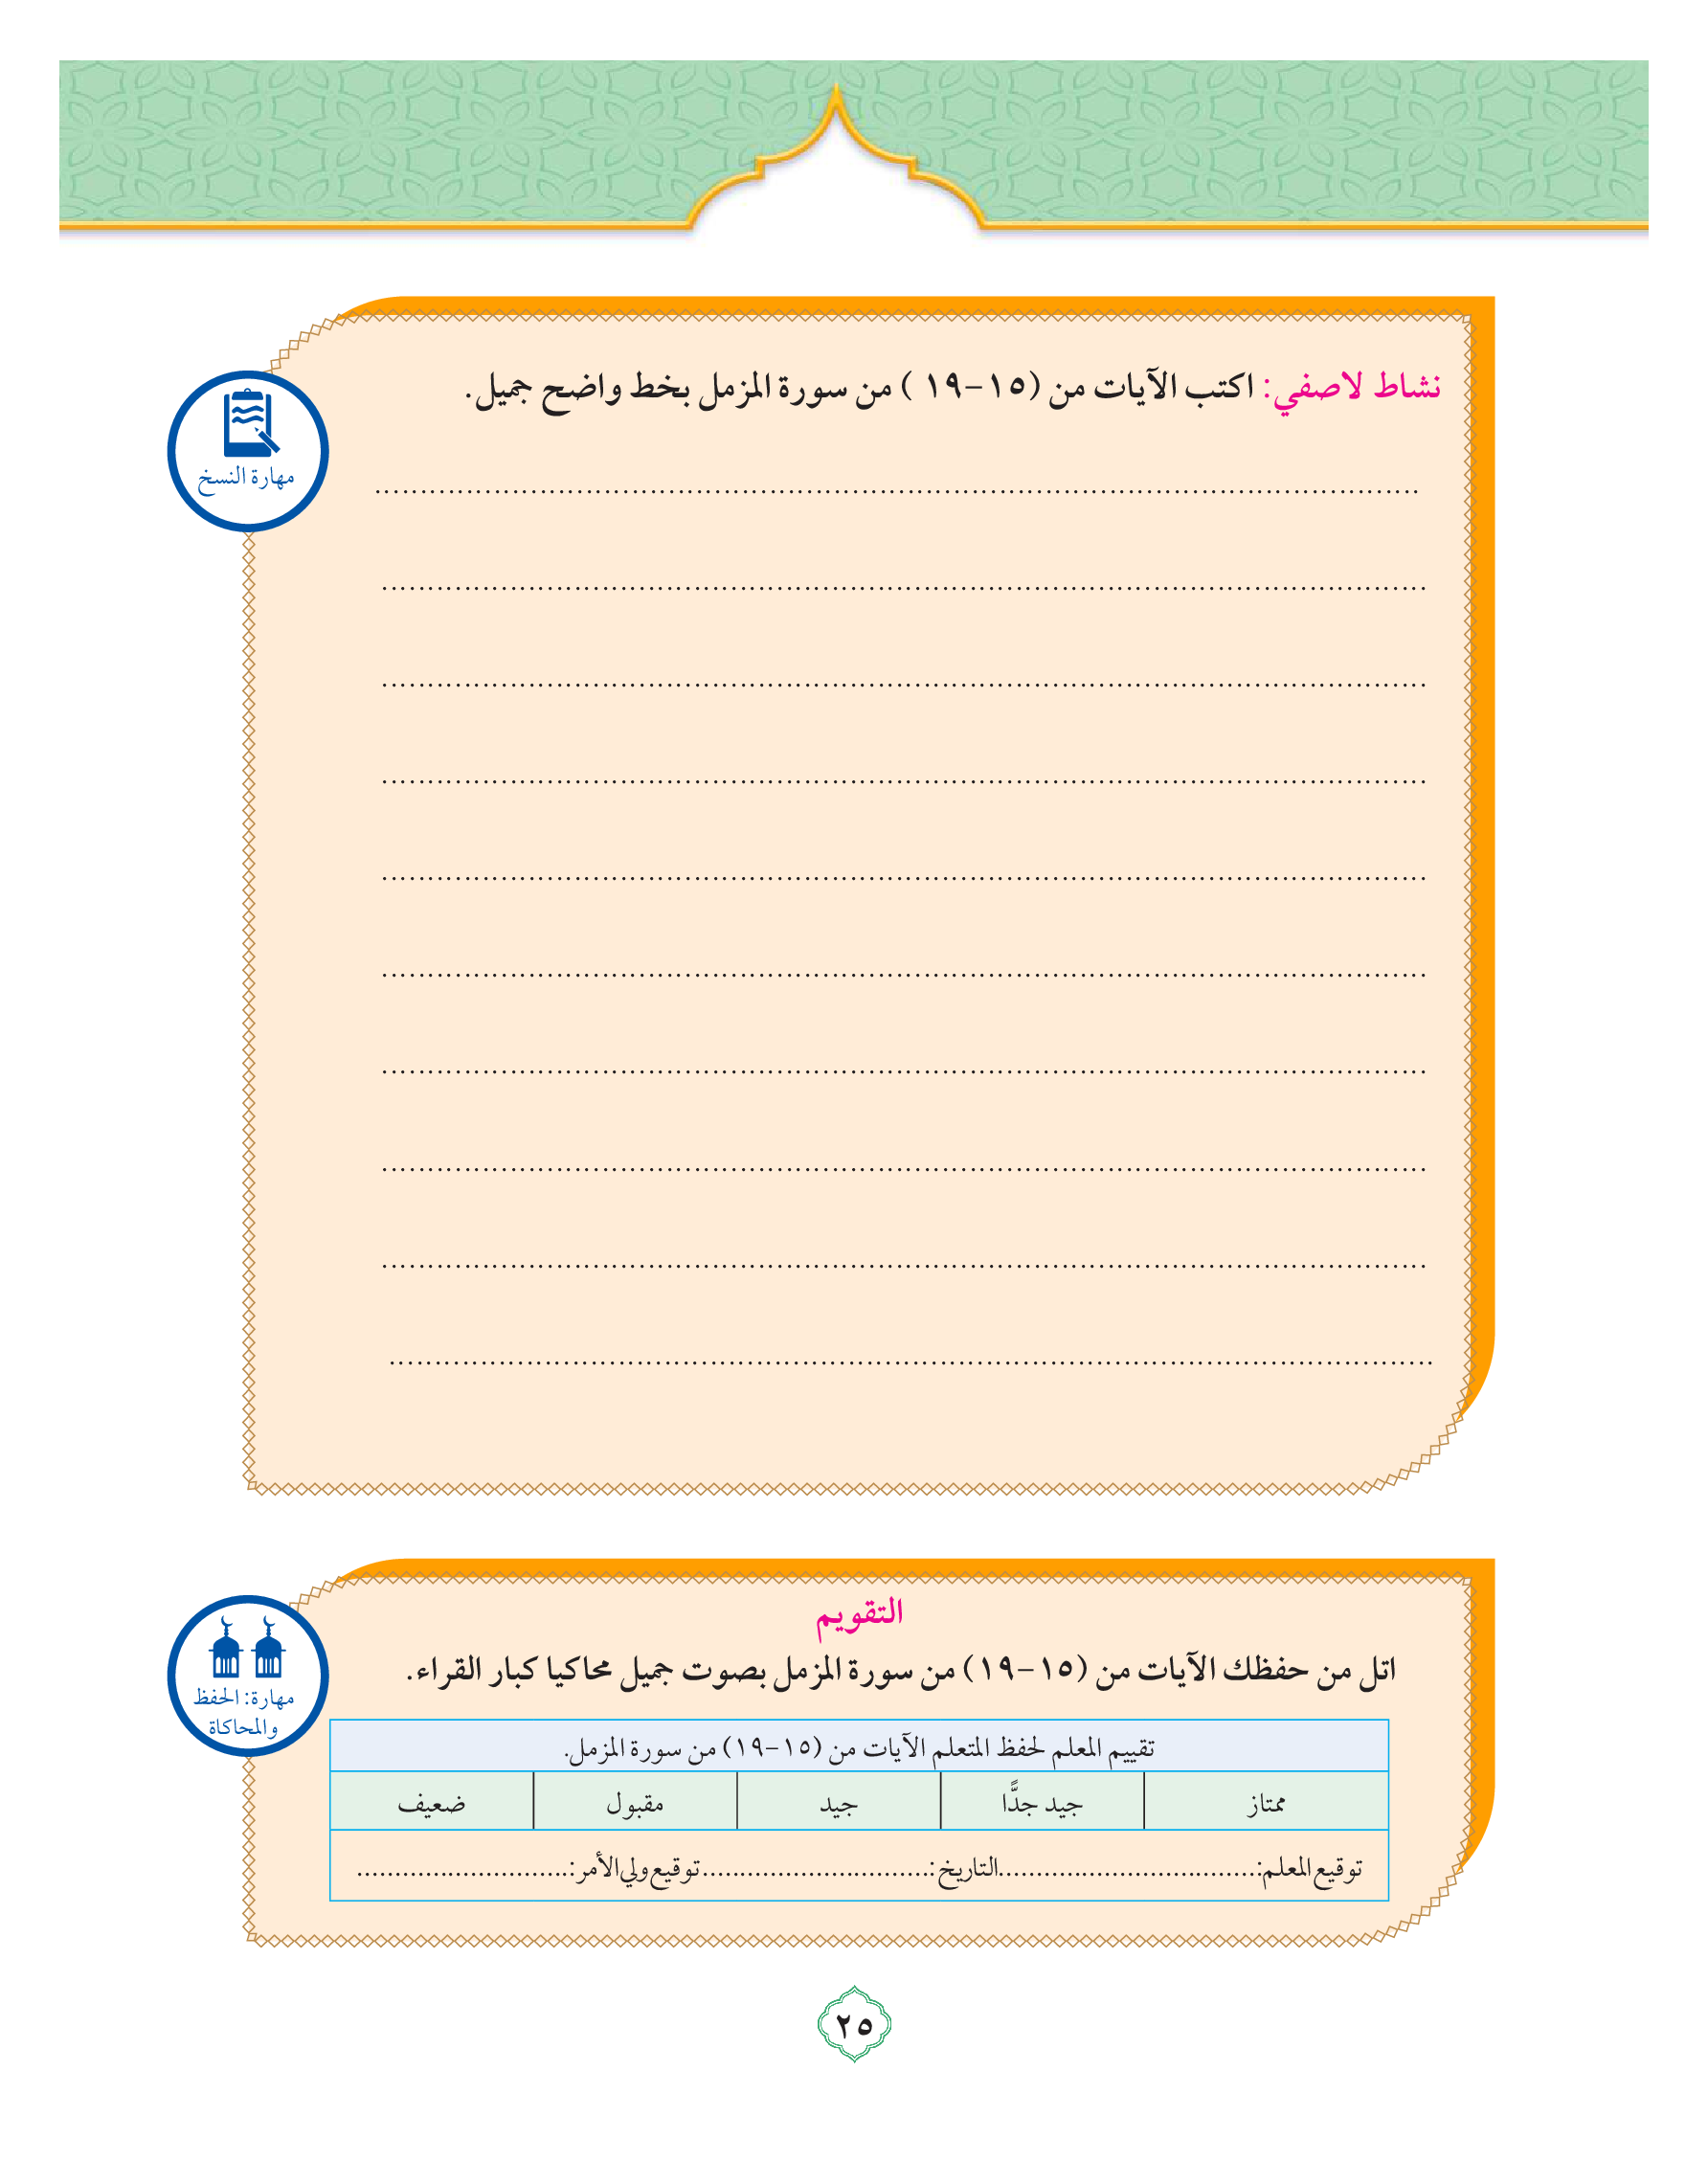 نشاط لاصفي: اكتب الآيات من (١٥-١٩ ) من سورة المزمل بخط واضح جميل.
مهارة النسخ
........................................................................
........................................................................
........................................................................
........................................................................
........................................................................
........................................................................
........................................................................
........................................................................
........................................................................
........................................................................
التقويم
اتل من حفظك الآيات من (١٥-١٩) من سورة المزمل بصوت جميل محاكيا كبار القراء.
مهارة: الحفظ
والمحاكاة
تقييم المعلم لحفظ المتعلم الآيات من (١٥-١٩) من سورة المزمل.
ممتاز جيد جدًّا جيد مقبول ضعيف
توقيع المعلم:..................................التاريخ:..............................توقيع ولي الأمر:............................
٢٥